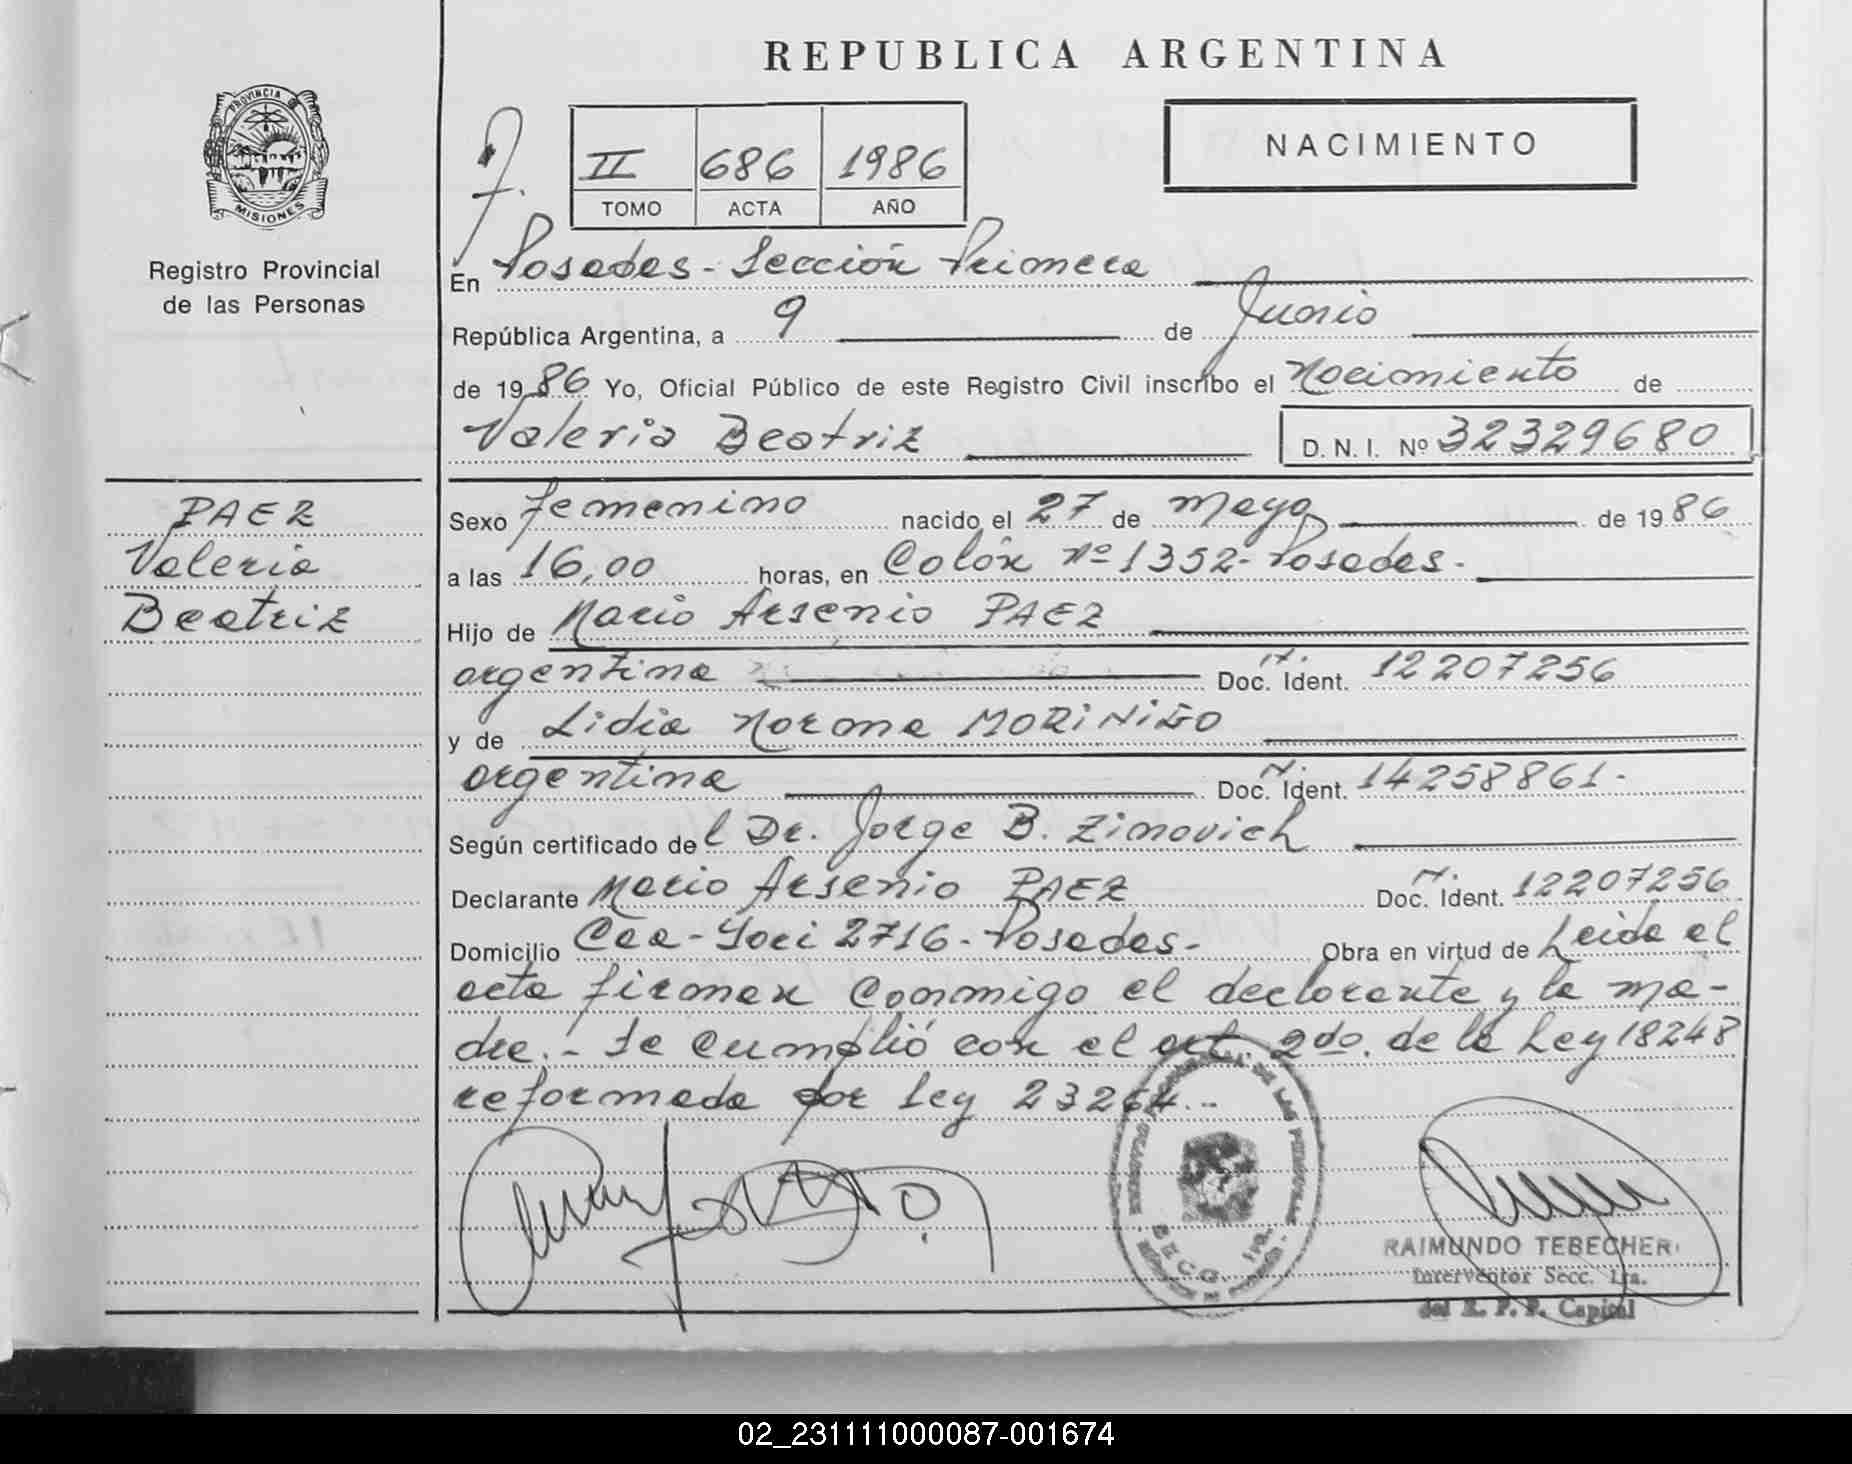 REPUBLICA ARGENTINA
PROVINCIA DE
MISIONES
Registro Provincial
de las Personas
II 686 1986
TOMO ACTA AÑO
NACIMIENTO
En Posadas - Sección Primera
República Argentina, a 9 de Junio
de 1986 Yo, Oficial Público de este Registro Civil inscribo el Nacimiento de
Valeria Beatriz D. N. I. Nº 32329680
PAEZ
Valeria
Beatriz
Sexo femenino nacido el 27 de Mayo de 1986
a las 16,00 horas, en Colón Nº 1352 - Posadas.-
Hijo de Mario Arsenio PAEZ
argentina Doc. Ident. 12207256
y de Lidia Norma MORINIGO
argentina Doc. Ident. 14258861-
Según certificado del Dr. Jorge B. Zinovich
Declarante Mario Arsenio PAEZ Doc. Ident. 12207256
Domicilio 2716 - Posadas.- Obra en virtud de Leida el
acta firman conmigo el declarante y la ma-
dre.- Se cumplió con el art. 2do. de la Ley 18248
reformada por Ley 23264.-
RAIMUNDO TEBECHERI
Interventor Secc. 1ra.
del R. P. P. Capital
02_231111000087-001674